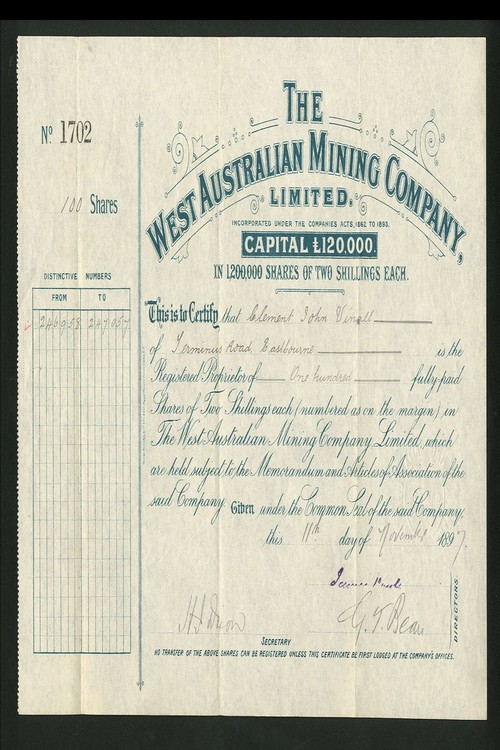 THE
WEST AUSTRALIAN MINING COMPANY,
LIMITED.
INCORPORATED UNDER THE COMPANIES ACTS, 1862 TO 1893.
CAPITAL £120,000.
IN 1,200,000 SHARES OF TWO SHILLINGS EACH.
No 1702
100 Shares
DISTINCTIVE NUMBERS
FROM TO
246958 247057
This is to Certify that Clement John Vinall
of Terminus Road, Eastbourne is the
Registered Proprietor of One hundred fully-paid
Shares of Two Shillings each (numbered as on the margin) in
The West Australian Mining Company, Limited, which
are held subject to the Memorandum and Articles of Association of the
said Company. Given under the Common Seal of the said Company,
this 11th day of November 1897.
G. T. Bean
DIRECTORS.
SECRETARY
NO TRANSFER OF THE ABOVE SHARES CAN BE REGISTERED UNLESS THIS CERTIFICATE BE FIRST LODGED AT THE COMPANY'S OFFICES.